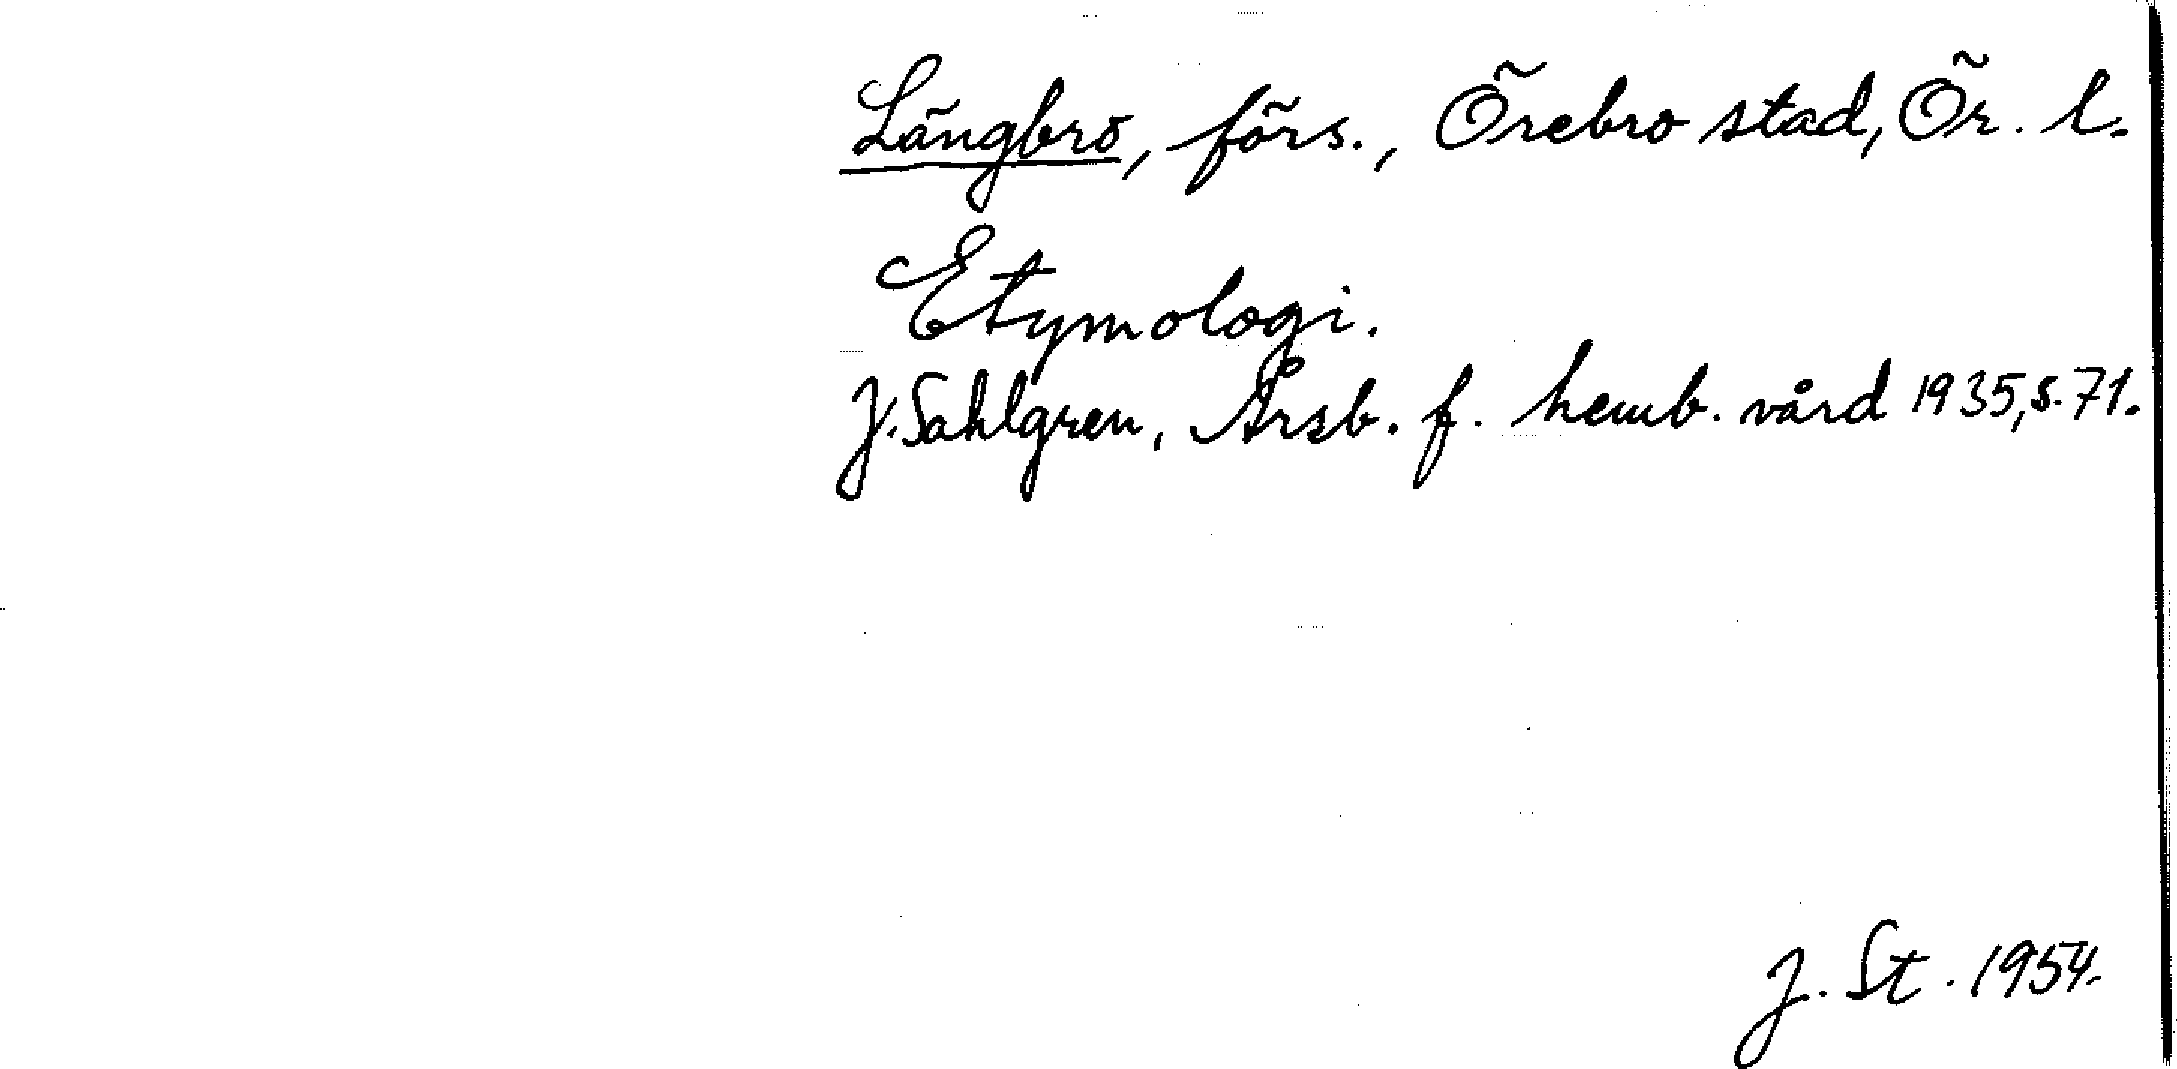 Längbro, förs., Örebro stad, Ör. l.
Etymologi.
J. Sahlgren, Årsb. f. hemb. vård 1935, s. 71.
J. St. 1954.